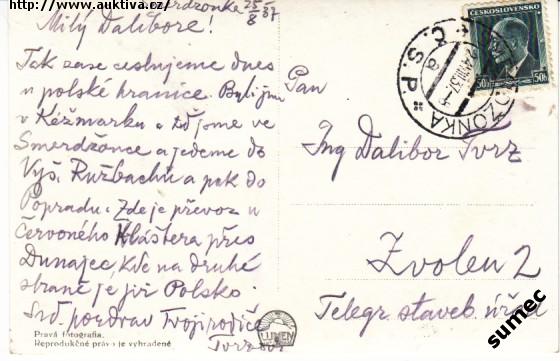 http://www.auktiva.cz/
Smerdžonka 25/8 37
Milý Dalibore!
Tak zase cestujeme dnes
u polské hranice. Byli jsme
v Kežmarku a teď jsme ve
Smerdžonce a jedeme do
Vyš. Ružbachů a pak do
Popradu. Zde je převoz u
Červeného Kláštera přes
Dunajec, kde na druhé
straně je již Polsko.
Srd. pozdrav Tvoji rodiče
Pravá fotografia.
Reprodukčné práva je vyhradené
LUMEN
ČESKOSLOVENSKO
50h 50h
Č.S.P.
Pan
Ing Dalibor Tvrz
Zvolen 2
Telegr. staveb. úřad
sumec